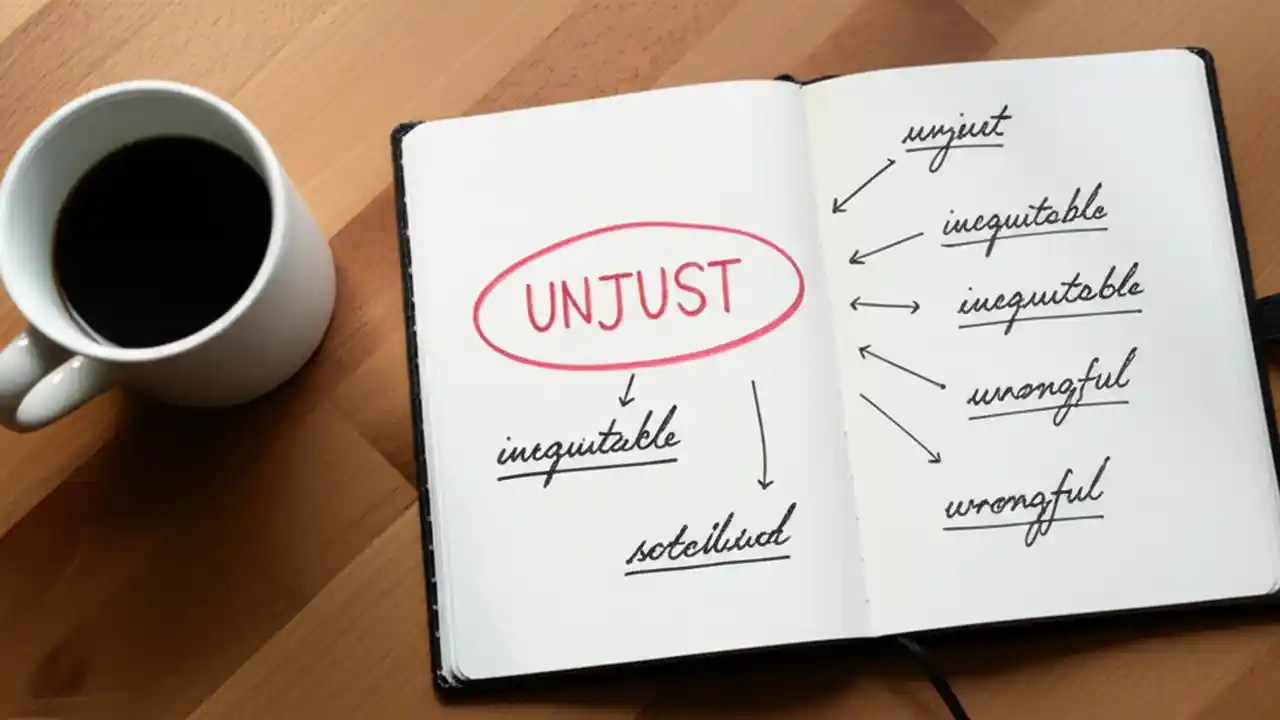 UNJUST
inequitable
unjust
inequitable
inequitable
wrongful
wrongful